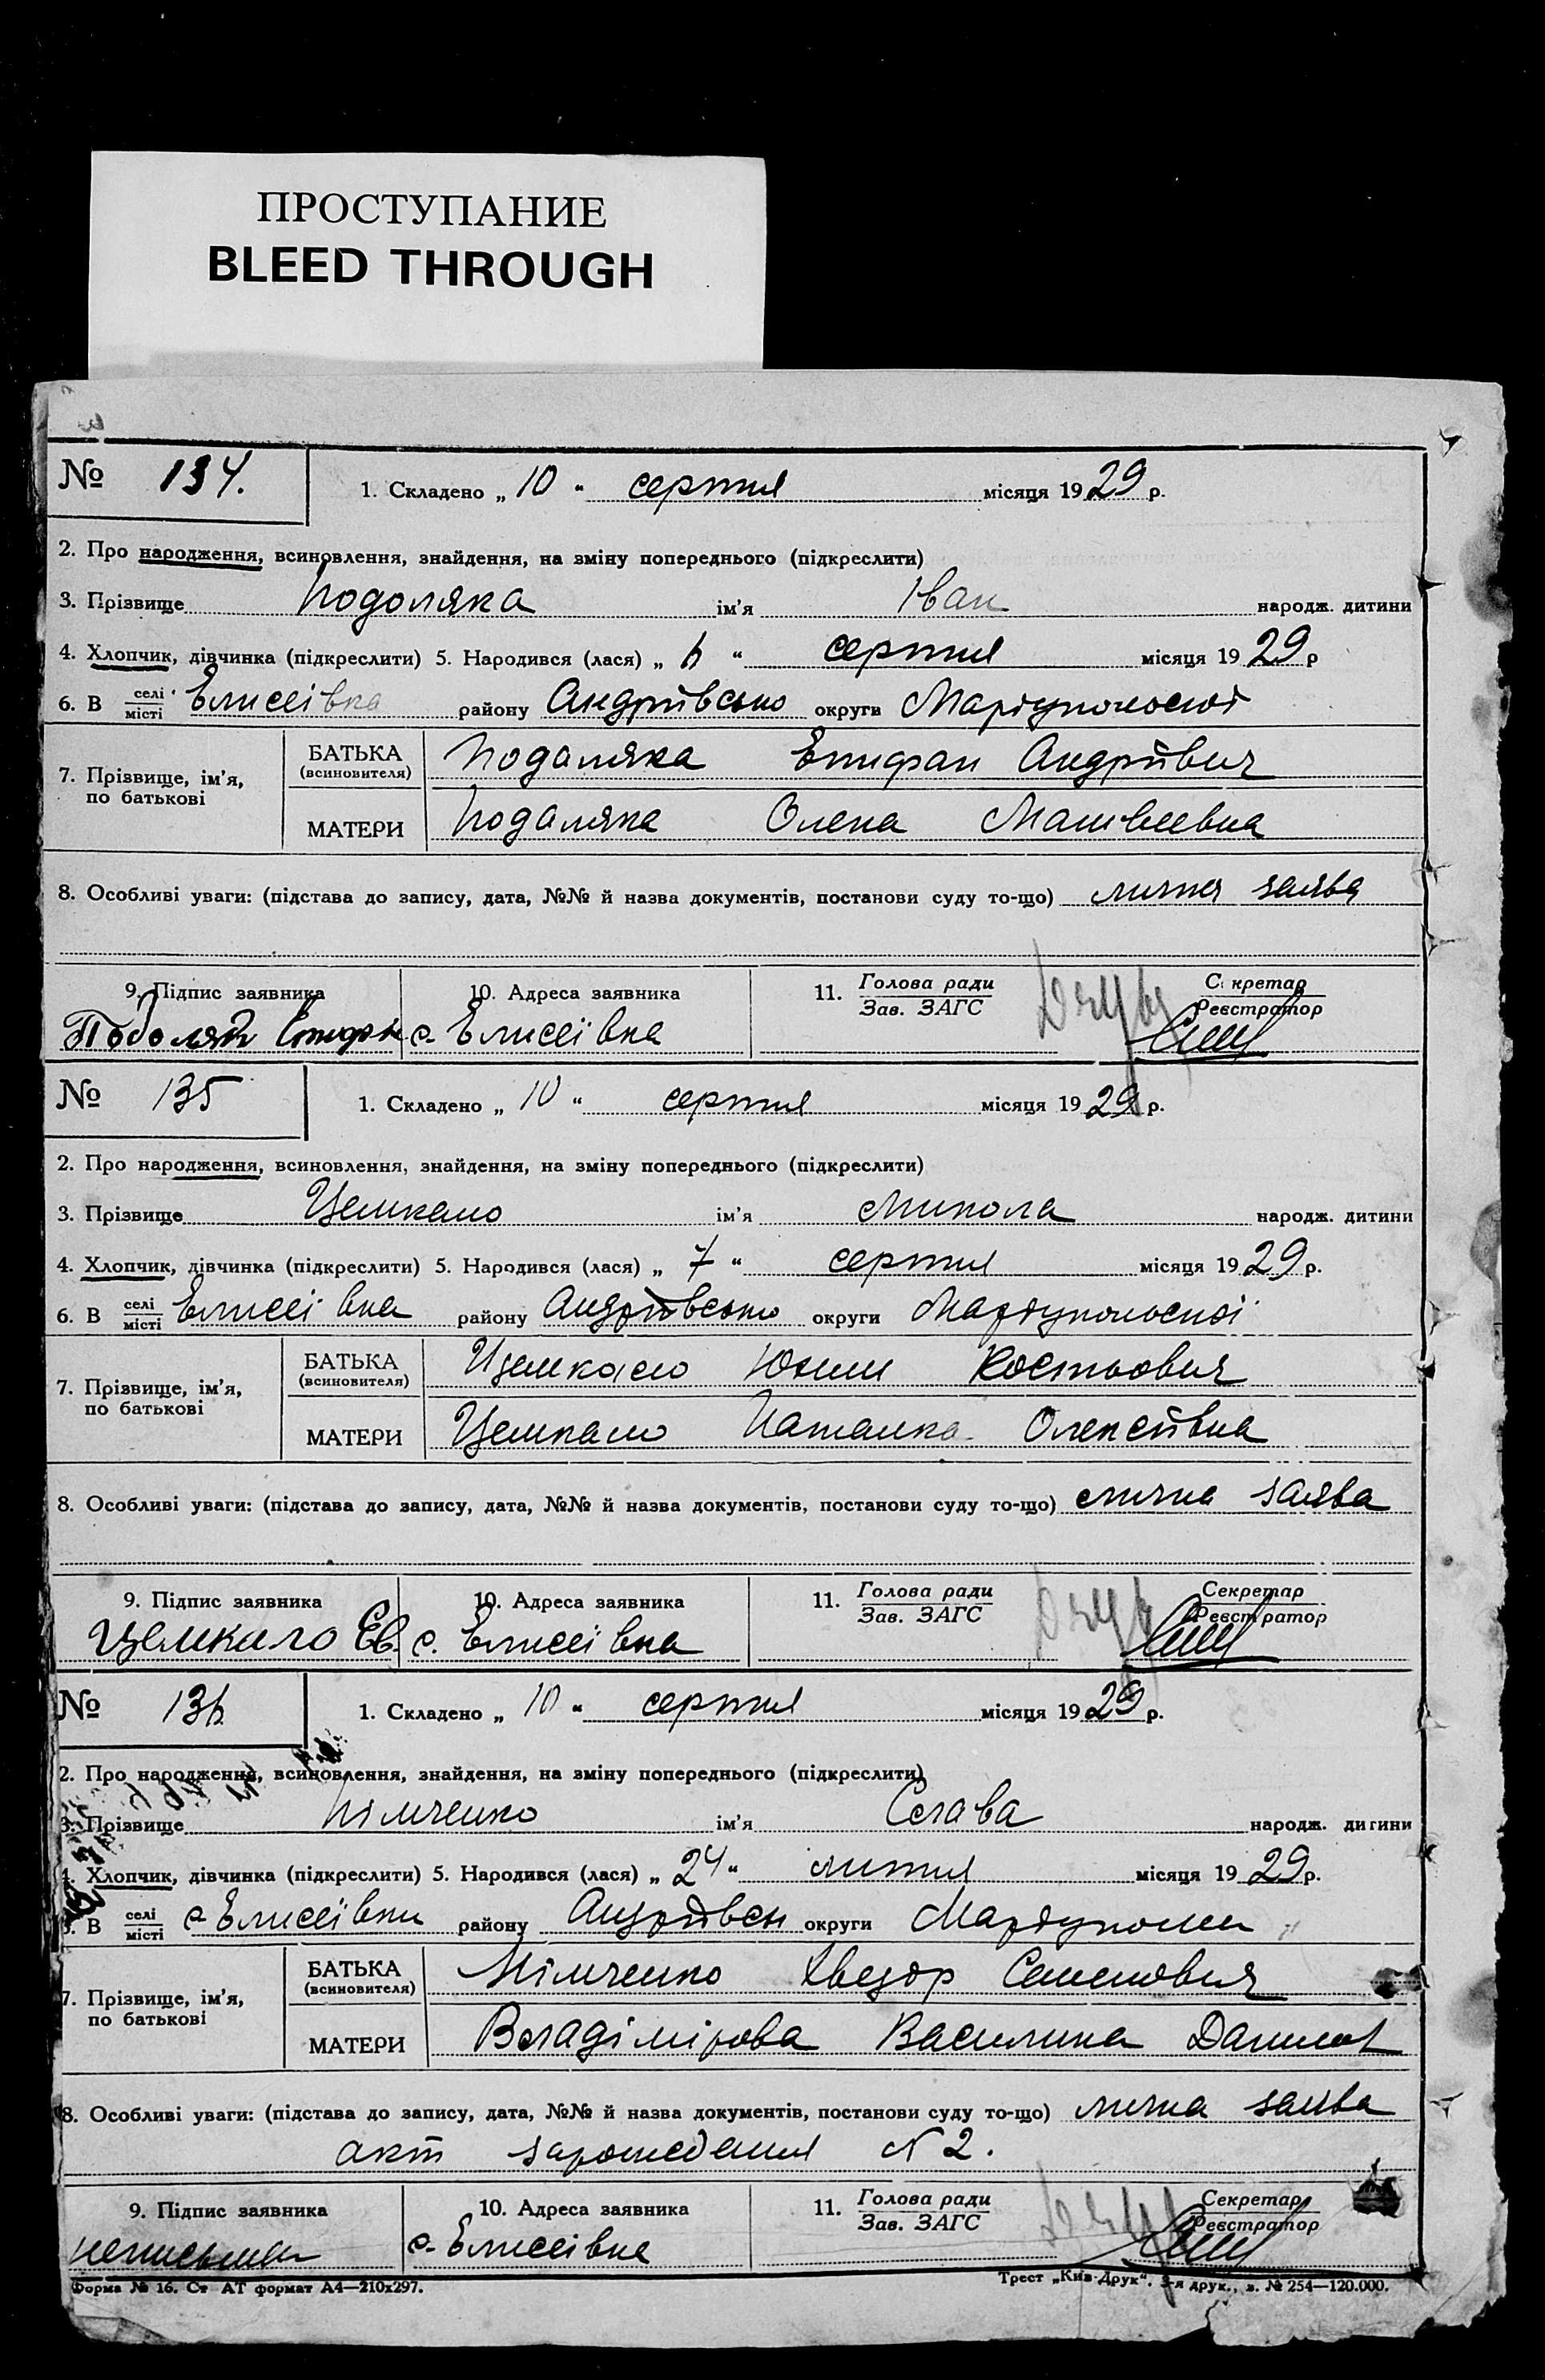 ПРОСТУПАНИЕ
BLEED THROUGH
№ 134.
1. Складено „ 10 “ серпня місяця 1929 р.
2. Про народження, всиновлення, знайдення, на зміну попереднього (підкреслити)
3. Прізвище Подоляка ім'я Іван народж. дитини
4. Хлопчик, дівчинка (підкреслити) 5. Народився (лася) „ 6 “ серпня місяця 1929 р
6. В селі місті Елисеївка району Андріївсько округи Маріупольської
7. Прізвище, ім'я, по батькові
БАТЬКА (всиновителя) Подаляка Епифан Андрійвич
МАТЕРИ Подаляка Олена Матвеевна
8. Особливі уваги: (підстава до запису, дата, №№ й назва документів, постанови суду то-що) лична заява
9. Підпис заявника
10. Адреса заявника
11. Голова ради Зав. ЗАГС
Секретар Реєстратор
с. Елисеївка
№ 135
1. Складено „ 10 “ серпня місяця 1929 р.
2. Про народження, всиновлення, знайдення, на зміну попереднього (підкреслити)
3. Прізвище Цемкало ім'я Микола народж. дитини
4. Хлопчик, дівчинка (підкреслити) 5. Народився (лася) „ 7 “ серпня місяця 1929 р.
6. В селі місті Елисеївка району Андріївсько округи Маріупольської
7. Прізвище, ім'я, по батькові
БАТЬКА (всиновителя) Цемкало Юхим Костьович
МАТЕРИ Цемкало Наталка Олексіївна
8. Особливі уваги: (підстава до запису, дата, №№ й назва документів, постанови суду то-що) лична заява
9. Підпис заявника
10. Адреса заявника
11. Голова ради Зав. ЗАГС
Секретар Реєстратор
Цемкало Ев. с. Елисеївка
№ 136
1. Складено „ 10 “ серпня місяця 1929 р.
2. Про народження, всиновлення, знайдення, на зміну попереднього (підкреслити)
3. Прізвище Німченко ім'я Слава народж. дитини
4. Хлопчик, дівчинка (підкреслити) 5. Народився (лася) „ 24 “ липня місяця 1929 р.
6. В селі місті с Елисеївки району Андріївсь округи Маріуполь
7. Прізвище, ім'я, по батькові
БАТЬКА (всиновителя) Німченко Хведор Семенович
МАТЕРИ Владімірова Василина Данилов
8. Особливі уваги: (підстава до запису, дата, №№ й назва документів, постанови суду то-що) лична заява
акт зарождения N 2.
9. Підпис заявника
10. Адреса заявника
11. Голова ради Зав. ЗАГС
Секретар Реєстратор
с. Елисеївка
Форма № 16. Ст АТ формат А4—210х297.
Трест „Київ-Друк“. 3-я друк., з. № 254—120.000.